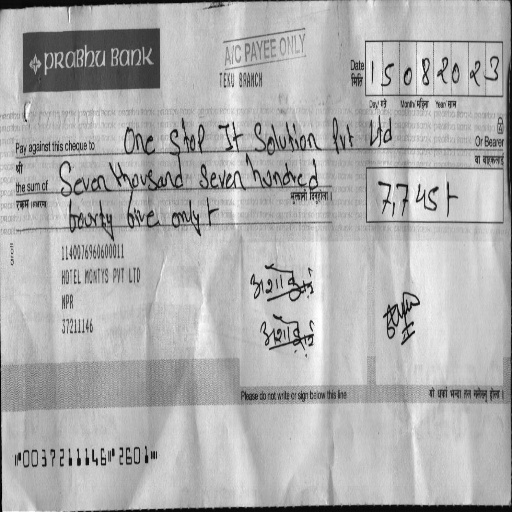 PRABHU BANK
A/C PAYEE ONLY
TEKU BRANCH
Date
मिति
15082023
Day/ गते Month/ महिना Year/ साल
Pay against this cheque to One Stop It Solution Pvt Ltd Or Bearer
श्री
वा वाहकलाई
the sum of Seven thousand Seven hundred
fourty five only
7,745
1140076960600011
HOTEL MONTYS PVT LTD
NPR
37211146
Please do not write or sign below this line
यो धर्सा भन्दा तल नलेख्नु होला ।
0037211146 2601